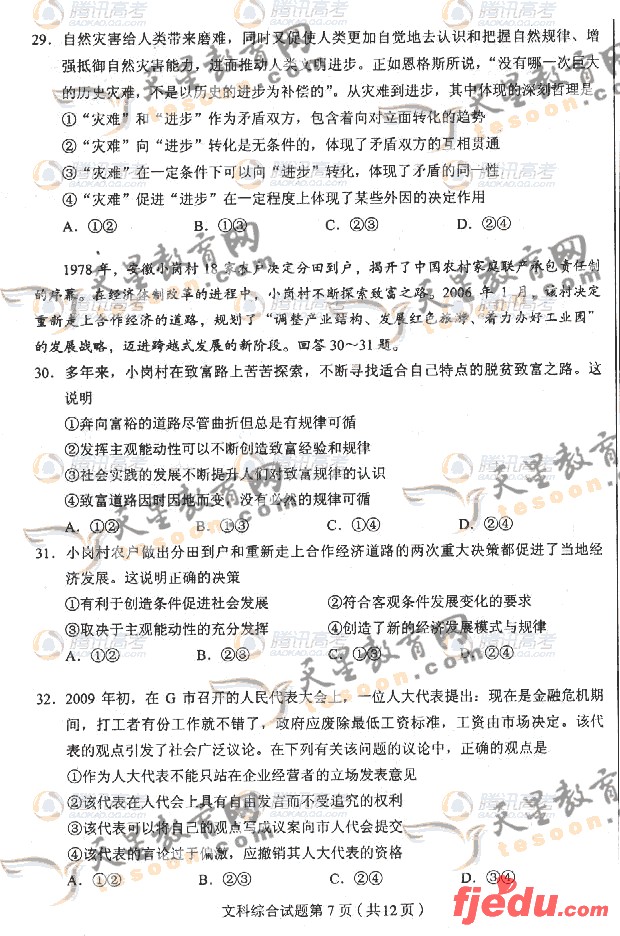 29. 自然灾害给人类带来磨难，同时又促使人类更加自觉地去认识和把握自然规律、增
强抵御自然灾害能力，进而推动人类文明进步。正如恩格斯所说，“没有哪一次巨大
的历史灾难，不是以历史的进步为补偿的”。从灾难到进步，其中体现的深刻哲理是
①“灾难”和“进步”作为矛盾双方，包含着向对立面转化的趋势
②“灾难”向“进步”转化是无条件的，体现了矛盾双方的互相贯通
③“灾难”在一定条件下可以向“进步”转化，体现了矛盾的同一性
④“灾难”促进“进步”在一定程度上体现了某些外因的决定作用
A. ①② B. ①③ C. ②③ D. ②④
1978 年，安徽小岗村 18 家农户决定分田到户，揭开了中国农村家庭联产承包责任制
的序幕。在经济体制改革的进程中，小岗村不断探索致富之路。2006 年 1 月，该村决定
重新走上合作经济的道路，规划了“调整产业结构、发展红色旅游、着力办好工业园”
的发展战略，迈进跨越式发展的新阶段。回答30～31题。
30. 多年来，小岗村在致富路上苦苦探索，不断寻找适合自己特点的脱贫致富之路。这
说明
①奔向富裕的道路尽管曲折但总是有规律可循
②发挥主观能动性可以不断创造致富经验和规律
③社会实践的发展不断提升人们对致富规律的认识
④致富道路因时因地而变，没有必然的规律可循
A. ①② B. ①③ C. ①④ D. ②④
31. 小岗村农户做出分田到户和重新走上合作经济道路的两次重大决策都促进了当地经
济发展。这说明正确的决策
①有利于创造条件促进社会发展 ②符合客观条件发展变化的要求
③取决于主观能动性的充分发挥 ④创造了新的经济发展模式与规律
A. ①② B. ①③ C. ②④ D. ③④
32. 2009 年初，在 G 市召开的人民代表大会上，一位人大代表提出：现在是金融危机期
间，打工者有份工作就不错了，政府应废除最低工资标准，工资由市场决定。该代
表的观点引发了社会广泛议论。在下列有关该问题的议论中，正确的观点是
①作为人大代表不能只站在企业经营者的立场发表意见
②该代表在人代会上具有自由发言而不受追究的权利
③该代表可以将自己的观点写成议案向市人代会提交
④该代表的言论过于偏激，应撤销其人大代表的资格
A. ①② B. ②③ C. ①④ D. ③④
文科综合试题第 7 页（共12页）
天星教育网
tesoon.com
腾讯高考
BAOKAO.QQ.COM
fjedu.com